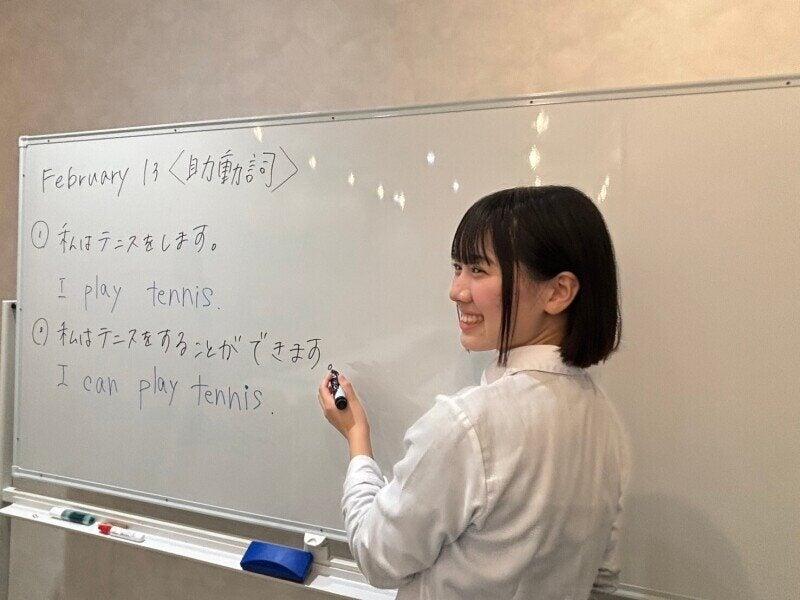 February 13〈助動詞〉
① 私はテニスをします。
I play tennis.
② 私はテニスをすることができます。
I can play tennis.